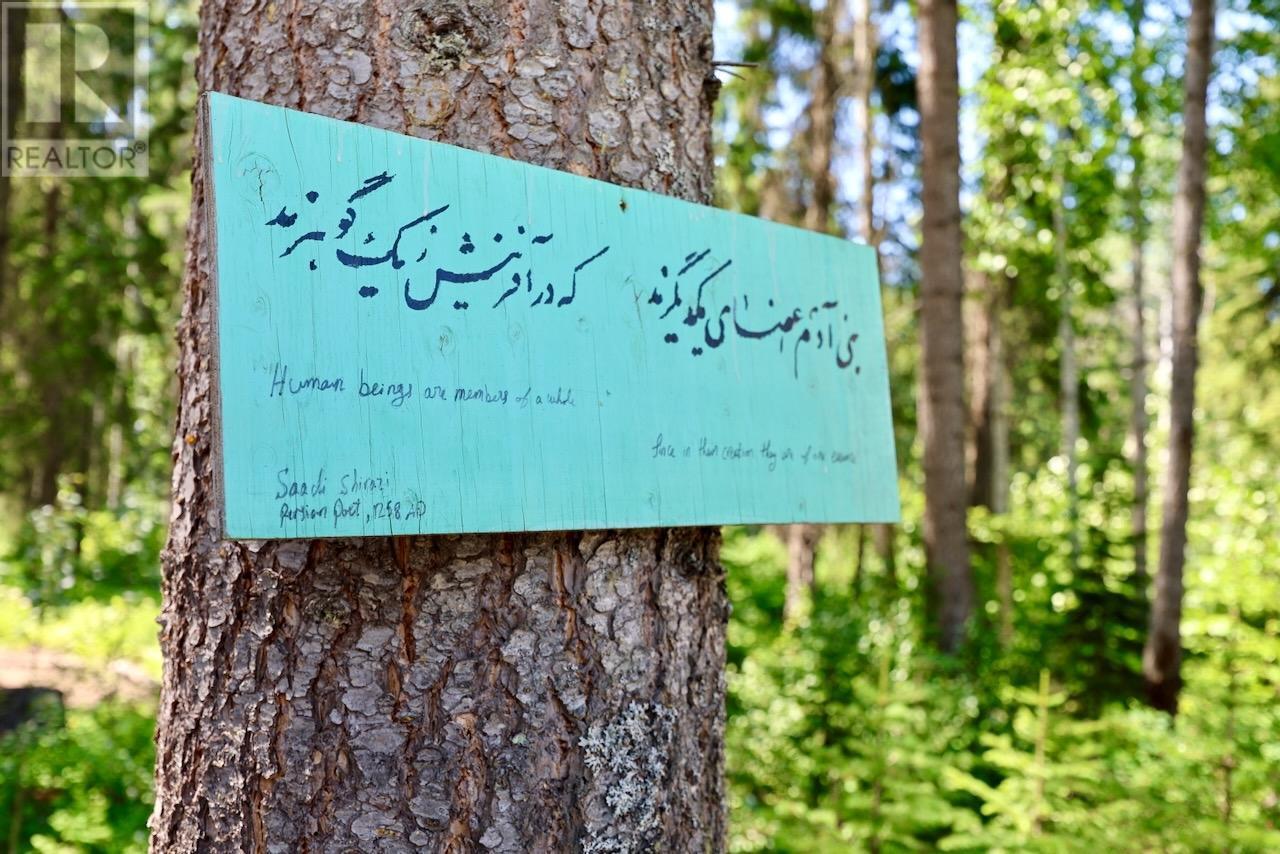 بنی آدم اعضای یکدیگرند
که در آفرینش ز یک گوهرند
Human beings are members of a whole
Since in their creation they are of one essence
Saadi Shirazi
Persian Poet, 1258 AD
REALTOR®